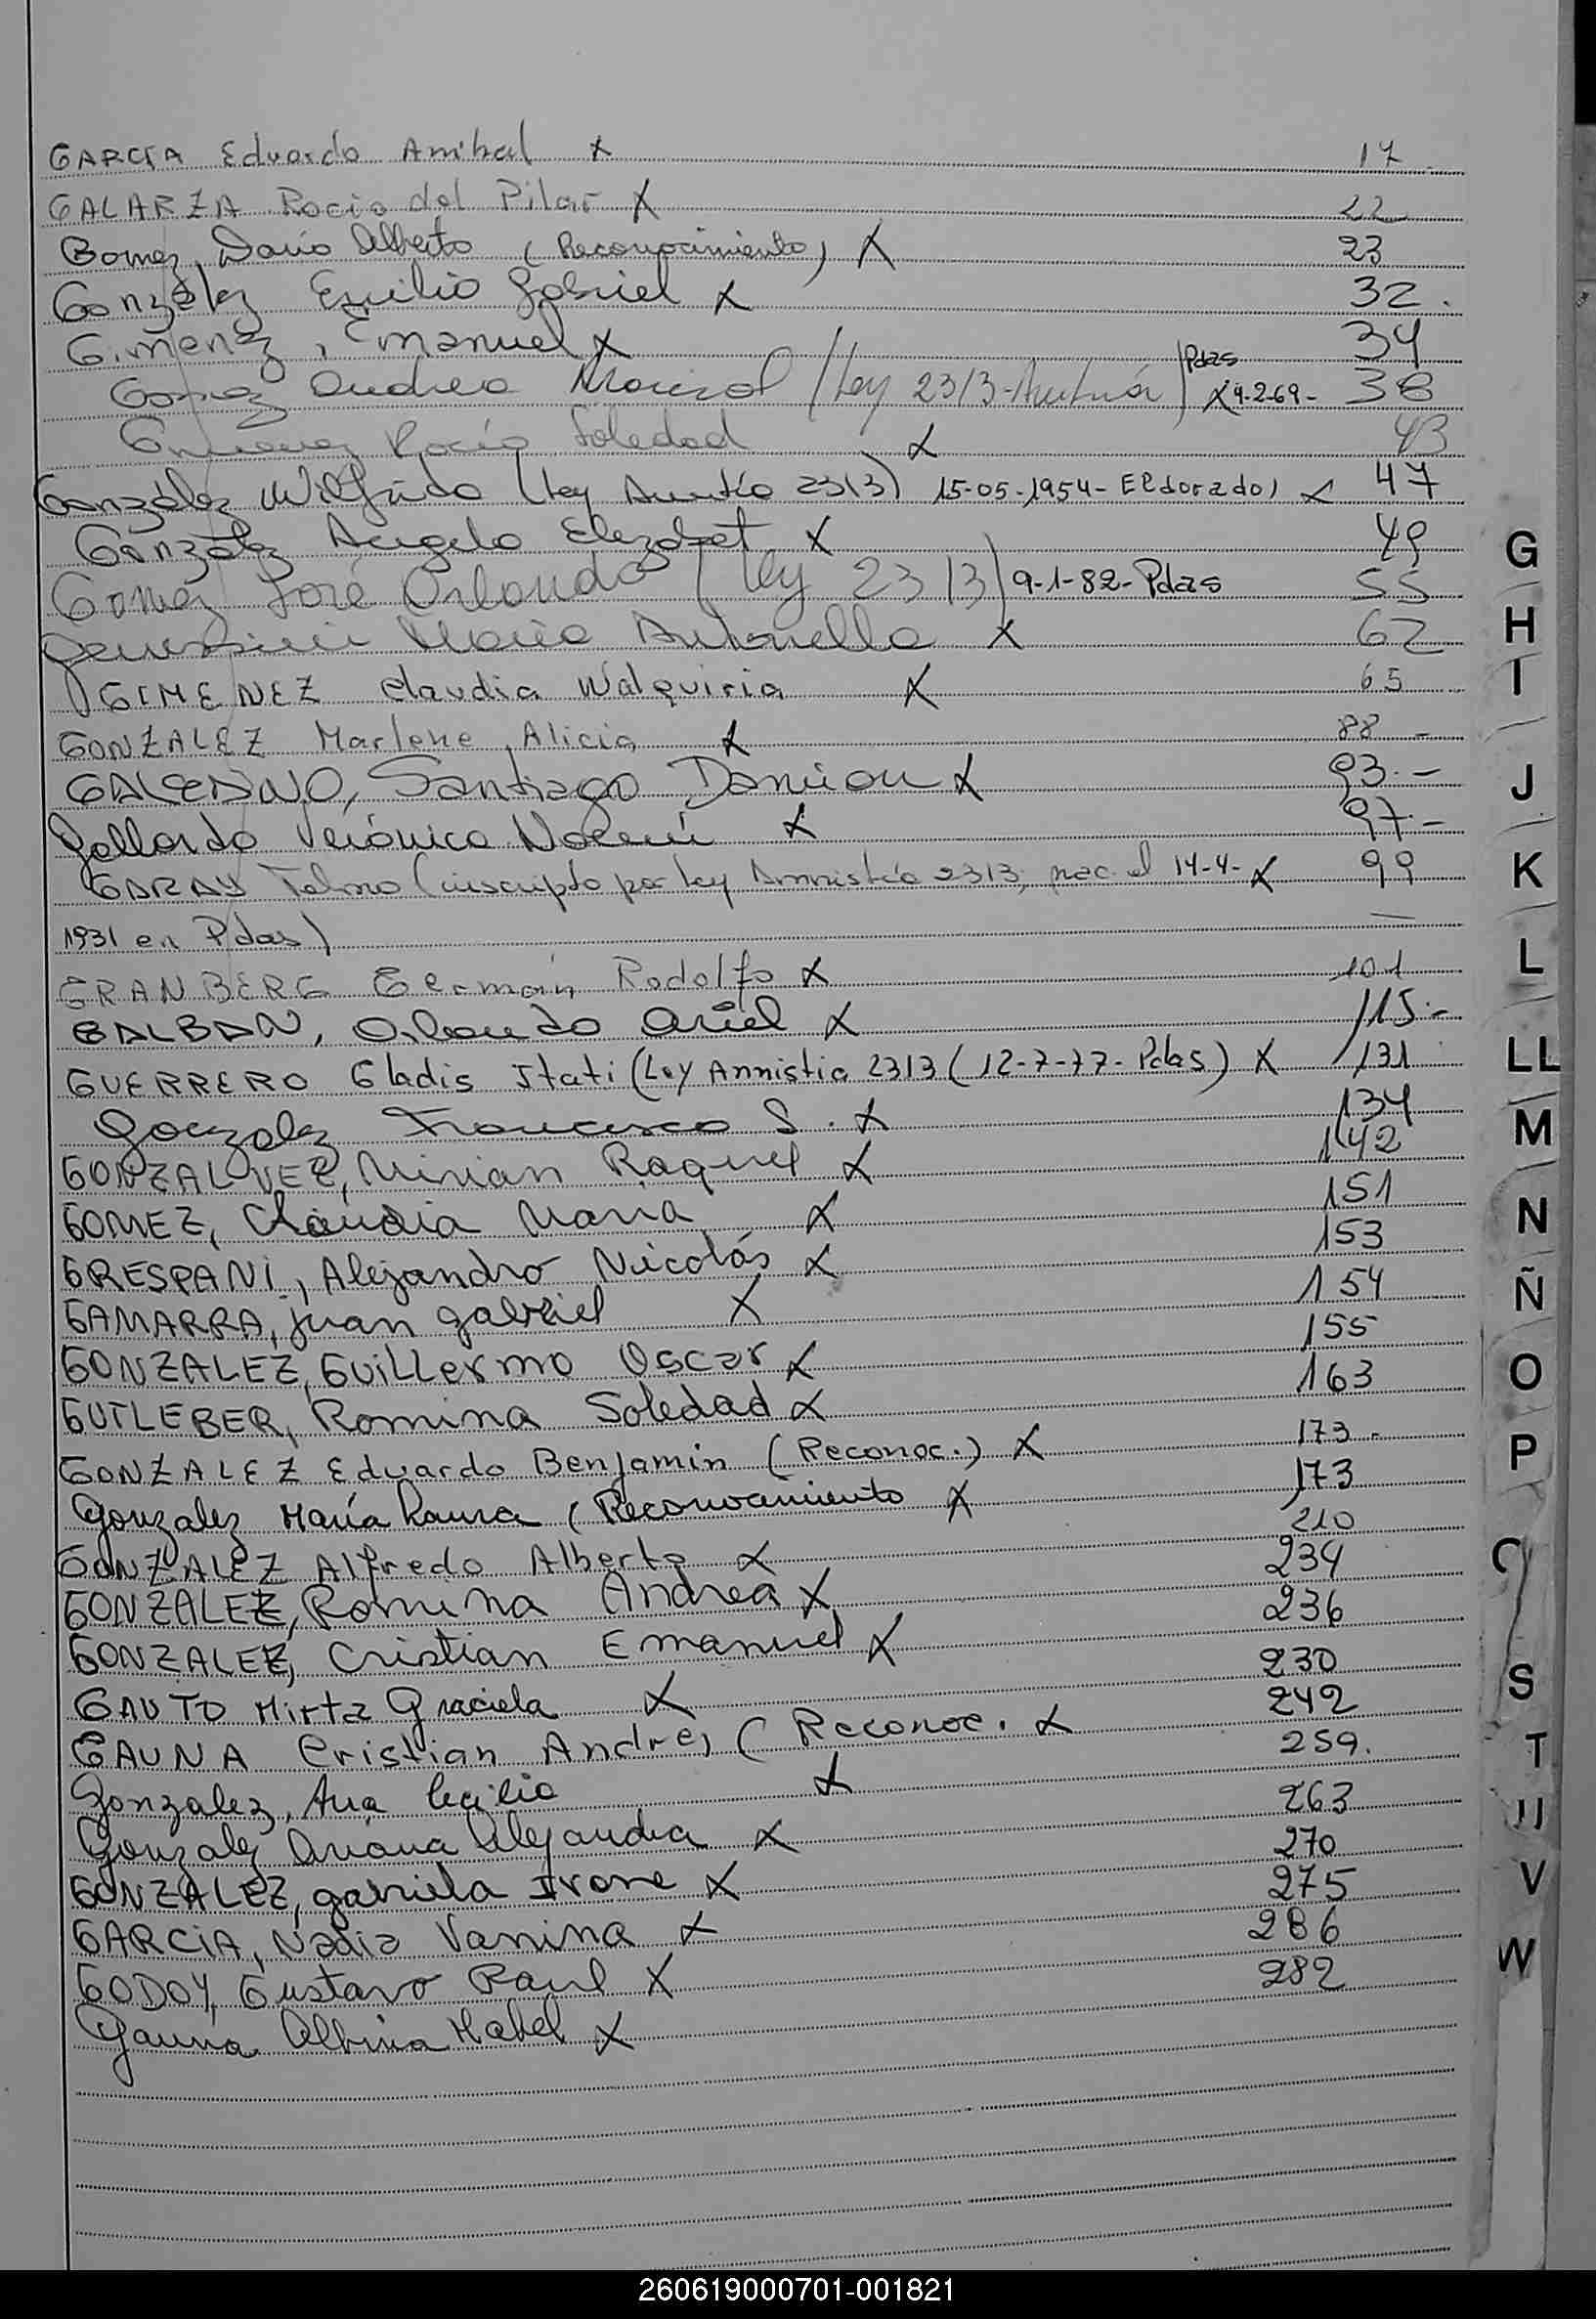 GARCIA Eduardo Anibal X 17
GALARZA Rocio del Pilar X 22
Gomez, Dario Alberto (Reconocimiento) X 23
González Emilio Gabriel X 32.
Gimenez, Emanuel X 34
Gomez Andrea Marisol (Ley 2313-Amnistía) Pdas X 9-2-69- 38
Gimenez Rocío Soledad X 43
González Wilfrido (Ley Amnistía 2313) 15-05-1954- Eldorado) X 47
González Angela Elizabet X 49
Gomez José Orlando (Ley 2313) 9-1-82- Pdas 55
María Antonella X 62
GIMENEZ Claudia Walquiria X 65
GONZALEZ Marlene Alicia X 88 -
GALEANO, Santiago Damian X 93.-
Gallardo Verónica Noemí X 97.-
GARAY Telmo (inscripto por Ley Amnistía 2313, nac. el 14-4- X 99
1931 en Pdas) —
GRANBERG Germán Rodolfo X 101
GALBAN, Orlando Ariel X 115.-
GUERRERO Gladis Itati (Ley Amnistia 2313 (12-7-77- Pdas) X 131
Gonzalez Francisco S. X 134
GONZALVEZ, Mirian Raquel X 142
GOMEZ, Claudia Maria X 151
GRESPANI, Alejandro Nicolás X 153
GAMARRA, juan gabriel X 154
GONZALEZ, Guillermo Oscar X 155
GUTLEBER, Romina Soledad X 163
GONZALEZ Eduardo Benjamin (Reconoc.) X 173.
Gonzalez María Laura (Reconocimiento X 173
GONZALEZ Alfredo Alberto X 210
GONZALEZ, Romina Andrea X 234
GONZALEZ, Cristian Emanuel X 236
GAUTO Mirta Graciela X 230
GAUNA Cristian Andres (Reconoc. X 242
Gonzalez, Ana Cecilia X 259.
Gonzalez Ariana Alejandra X 263
GONZALEZ, gabriela Ivone X 270
GARCIA, Nadia Vanina X 275
GODOY, Gustavo Raul X 286
Gauna Albina Mabel X 282
G
H
I
J
K
L
LL
M
N
Ñ
O
P
Q
S
T
U
V
W
260619000701-001821